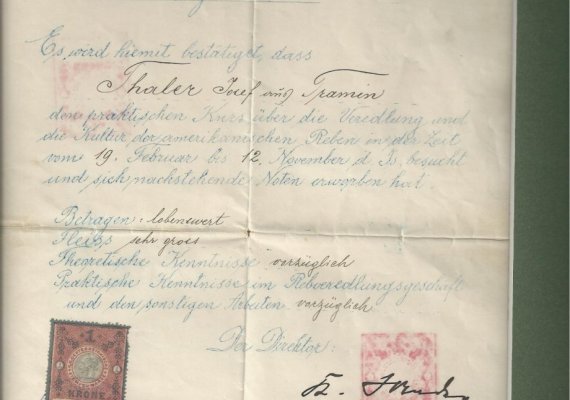 Es wird hiemit bestätiget, dass
Thaler Josef aus Tramin
den praktischen Kurs über die Veredlung und
die Kultur der amerikanischen Reben in der Zeit
vom 19. Februar bis 12. November d. Js. besucht
und sich nachstehende Noten erworben hat.
Betragen: lobenswert
Fleiss sehr gross
Theoretische Kenntnisse vorzüglich
Praktische Kenntnisse im Rebveredlungsgeschäft
und den sonstigen Arbeiten. vorzüglich
Der Direktor:
1
KRONE